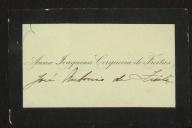 Anna Joaquina Cerqueira de Freitas
José Antonio de